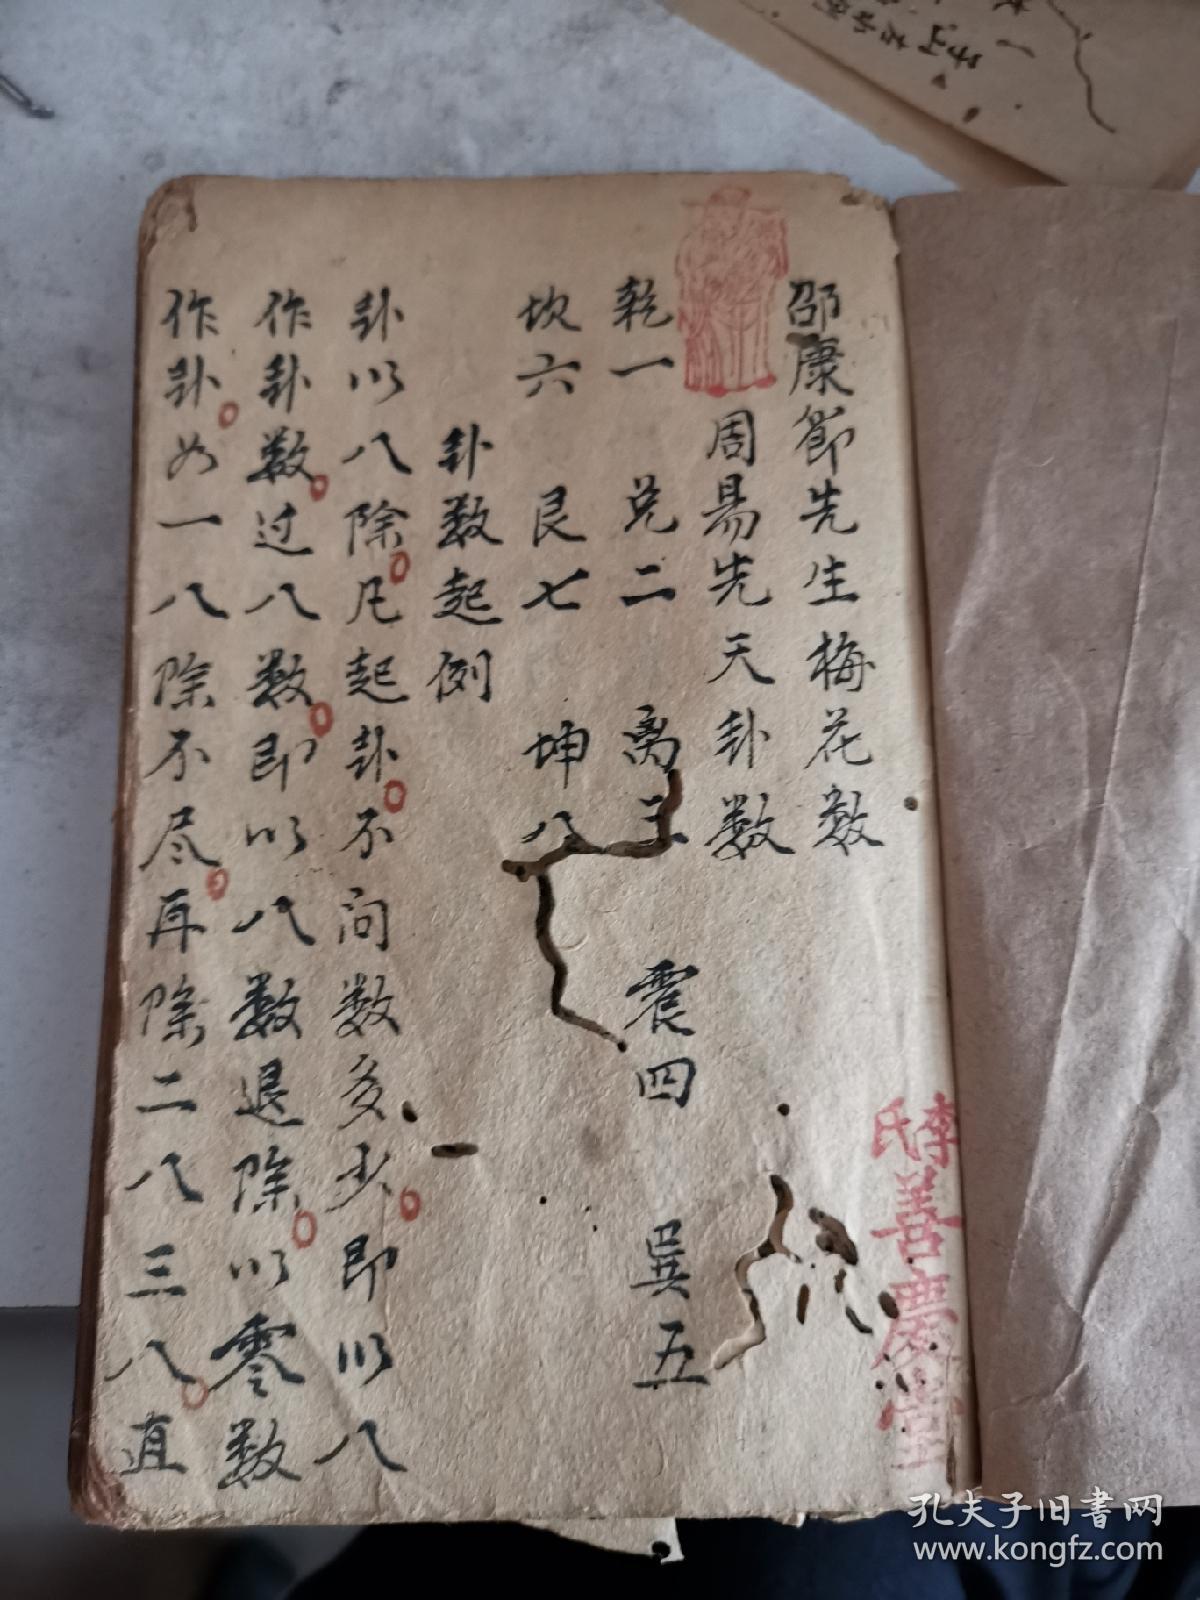 邵康節先生梅花数
周易先天卦数
乾一 兑二 离三 震四 巽五
坎六 艮七 坤八
卦数起例
卦以八除凡起卦不问数多少即以八
作卦数过八数即以八数退除以零数
作卦如一八除不尽再除二八三八直
李氏
善慶堂
孔夫子旧书网
www.kongfz.com